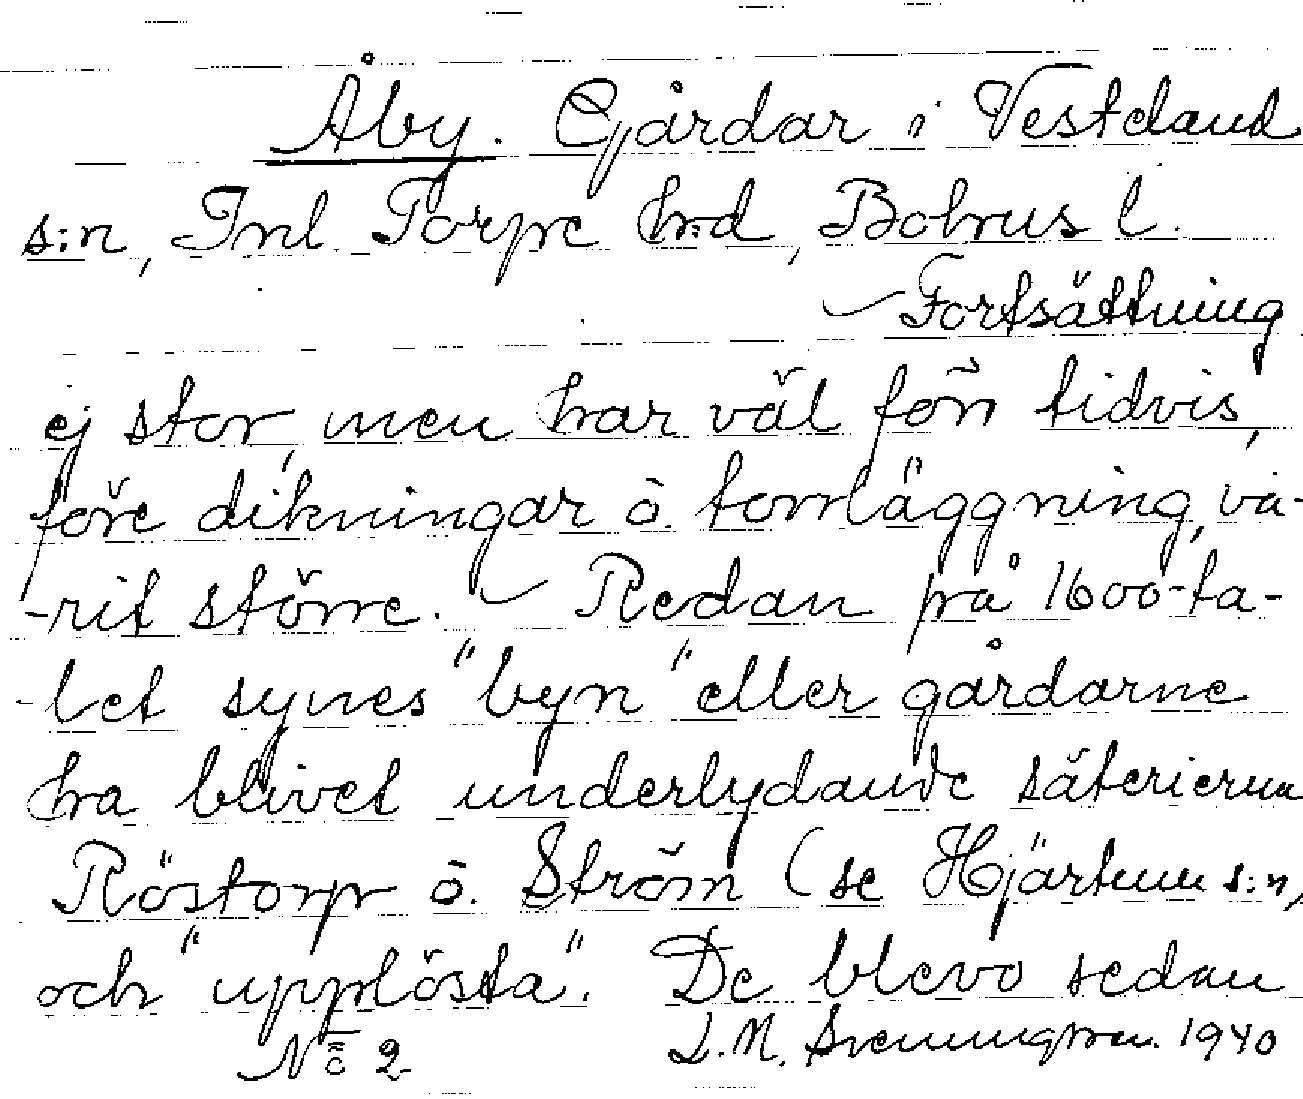 Åby. Gjårdar i Vesterland
s:n, Inl. Torpe h:d, Bohus l.
Fortsättning
ej stor, men har väl förr tidvis,
före dikningar o. torrläggning, va-
-rit större. Redan på 1600-ta-
-let synes "byn" eller gårdarne
ha blivet underlydande säterierna
Röstorp o. Ström (se Hjärtum s:n,
och "upplösta". De blevo sedan
No 2 L.M. 1940